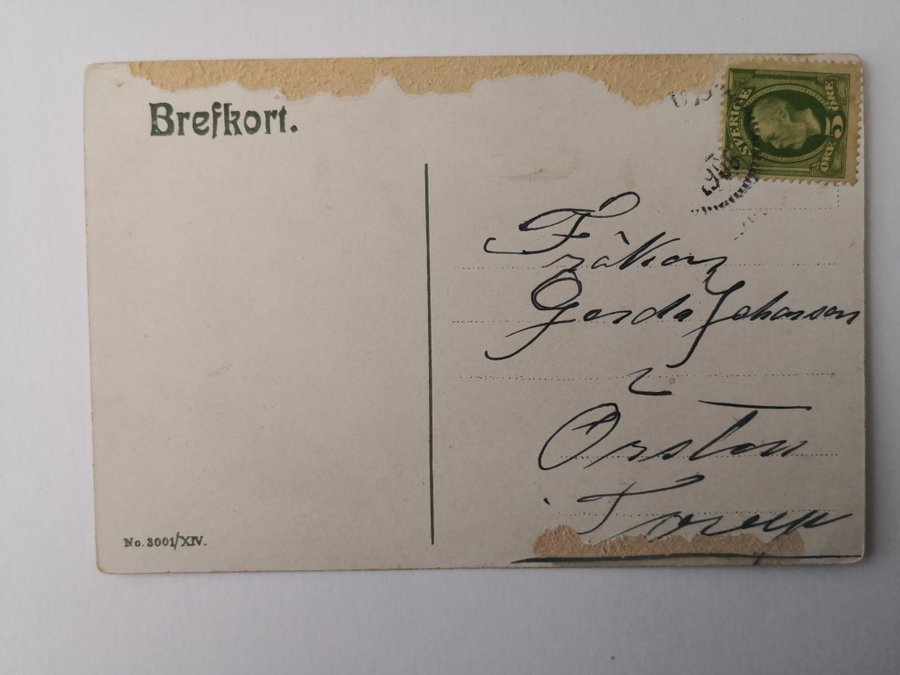 Brefkort.
SVERIGE
ÖRE ÖRE
Fröken
Gerda Johanson
i
Torup
No. 3001/XIV.